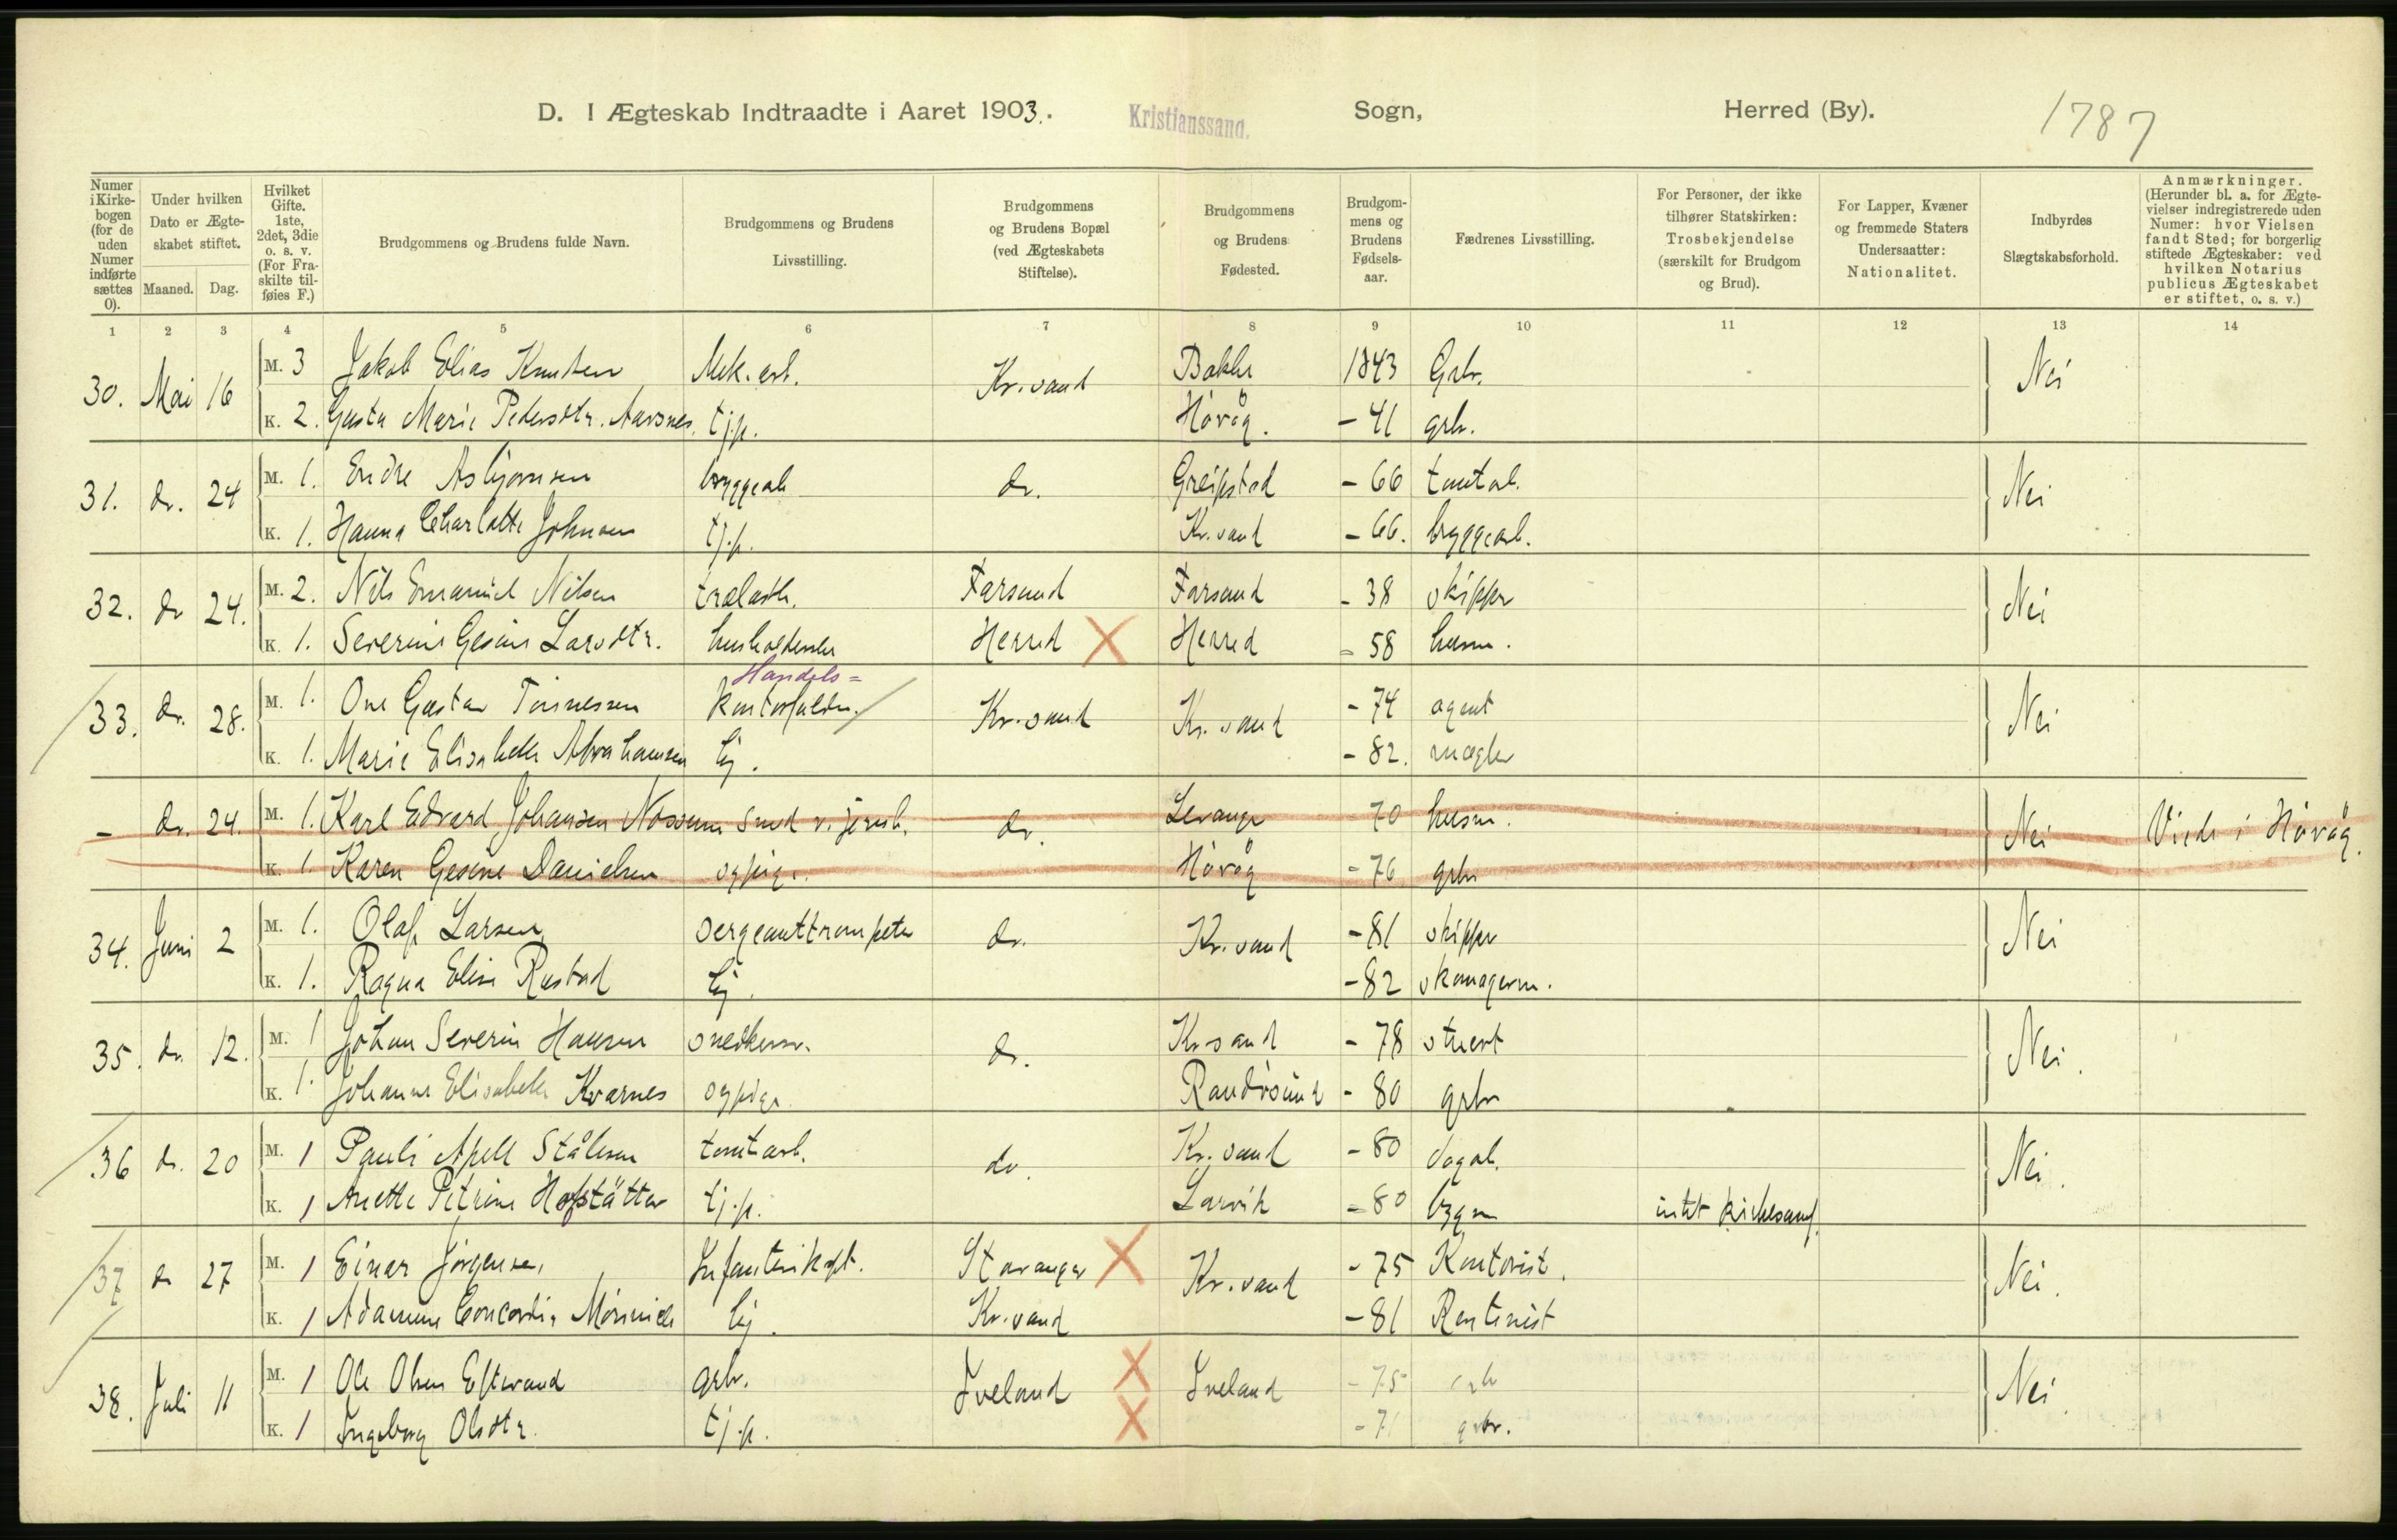 D. I Ægteskab Indtraadte i Aaret 1903. Kristianssand. Sogn, Herred (By). 1787
Numer i Kirkebogen (for de uden Numer indførte sættes 0).
Under hvilken Dato er Ægteskabet stiftet.
Maaned. Dag.
Hvilket Gifte. 1ste, 2det, 3die o. s. v. (For Fraskilte tilføies F.)
Brudgommens og Brudens fulde Navn.
Brudgommens og Brudens Livsstilling.
Brudgommens og Brudens Bopæl (ved Ægteskabets Stiftelse).
Brudgommens og Brudens Fødested.
Brudgommens og Brudens Fødselsaar.
Fædrenes Livsstilling.
For Personer, der ikke tilhører Statskirken: Trosbekjendelse (særskilt for Brudgom og Brud).
For Lapper, Kvæner og fremmede Staters Undersaatter: Nationalitet.
Indbyrdes Slægtskabsforhold.
Anmærkninger. (Herunder bl. a. for Ægtevielser indregistrerede uden Numer: hvor Vielsen fandt Sted; for borgerlig stiftede Ægteskaber: ved hvilken Notarius publicus Ægteskabet er stiftet, o. s. v.)
1 2 3 4 5 6 7 8 9 10 11 12 13 14
30. Mai 16 M. 3 Jakob Elias Knutsen Mek. arb. Kr.sand Bakke 1843 Grbr. Nei
K. 2. Gusta Marie Pedersdtr. Aavsnes. tj.p. Høvåg. - 41 grbr.
31. do. 24 M. 1. Endre Asbjørnsen bryggearb do. Greipstad - 66 tomtarb. Nei
K. 1. Hanna Charlotte Johnsen tj.p. Kr.sand - 66. bryggearb.
32. do 24. M. 2. Nils Emanuel Nilsen trælasth. Farsund Farsund - 38 skipper Nei
K. 1. Severine Gesine Larsdtr. husholderske Herred Herred - 58 husm.
Handels=
33. do. 28. M. 1. One Gustav Tønnessen kontorfuldm. Kr.sand Kr.sand - 74 agent Nei
K. 1. Marie Elisabeth Abrahamsen hj. - 82. mægler
- do. 24. M. 1. Karl Edvard Johansen Nossum Smed v. jernb. do. Levanger - 70 husm. Nei Viede i Høvåg.
K. 1. Karen Gesine Danielsen sypige. Høvåg - 76 grbr
34. Juni 2 M. 1. Olaf Larsen sergeanttrompeter do. Kr.sand - 81 skipper Nei
K. 1. Ragna Elise Rustad hj. - 82 skomagerm.
35. do. 12. M. 1 Johan Severin Hansen snedkersv. do. Kr.sand - 78 stuert Nei.
K. 1. Johanne Elisabeth Kvarnes sypige. Randøsund - 80 grbr
36 do. 20 M. 1 Pauli Apell Stålesen tomtarb. do. Kr.sand - 80 dagarb. Nei.
K. 1 Anette Petrine Hofstätter tj.p. Larvik - 80 bygm intet kirkesamf.
37 do 27 M. 1 Einar Jørgensen Infanterikapt. Stavanger Kr.sand - 75 Kontorist. Nei.
K. 1 Adamine Concordia Mörnich hj. Kr.sand - 81 Rentenist
38. Juli 11 M. 1 Ole Olsen Eftevand grbr. Iveland Iveland - 75 grbr Nei.
K. 1 Ingeborg Olsdtr. tj.p. - 71 grbr.